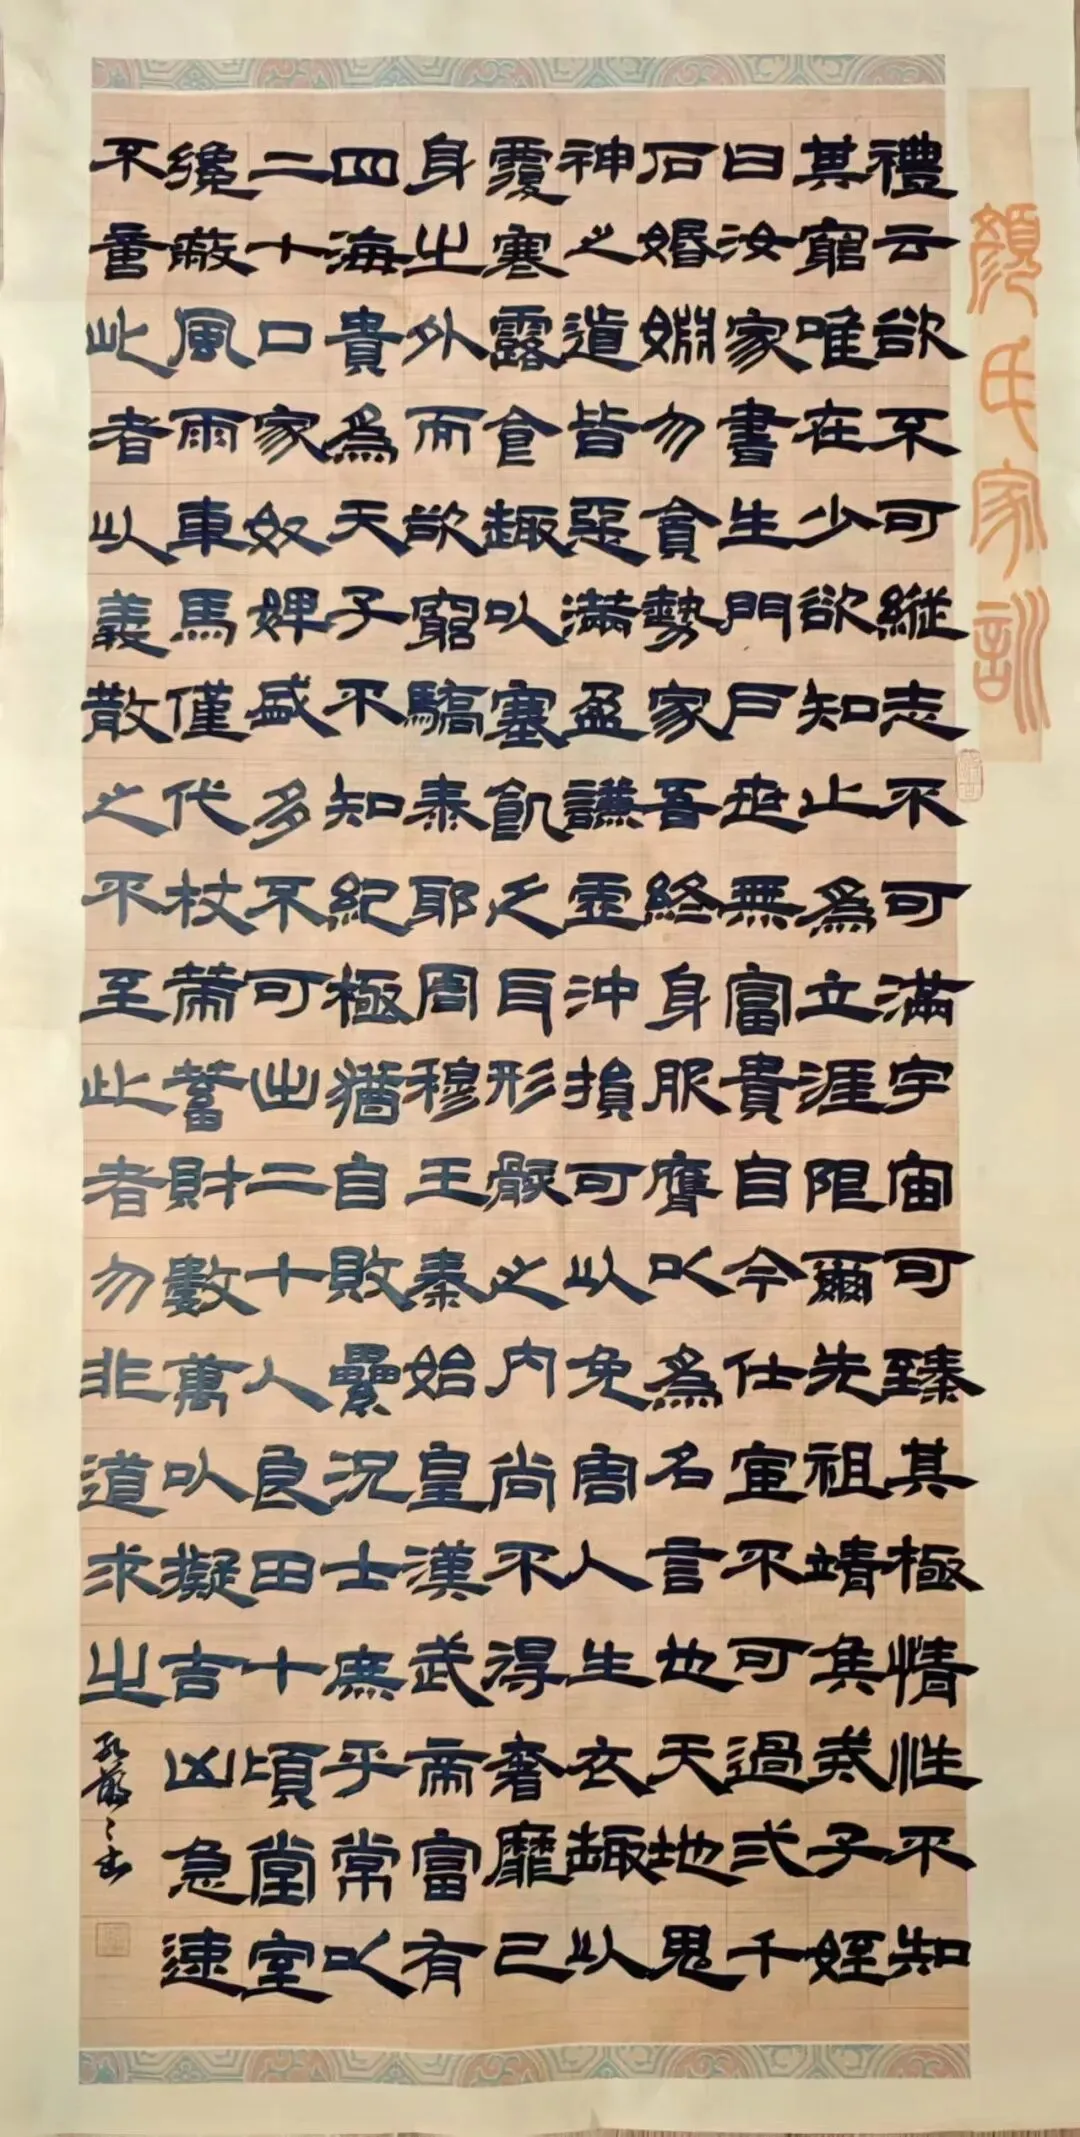 顏氏家訓
禮云欲不可縱志不可滿宇宙可臻其極情性不知
其窮唯在少欲知止爲立涯限爾先祖靖侯戒子姪
曰汝家書生門戶世無富貴自今仕宦不可過二千
石婚姻勿貪勢家吾終身服膺以爲名言也天地鬼
神之道皆惡滿盈謙虛沖損可以免害人生衣趣以
覆寒露食趣以塞飢乏耳形骸之內尚不得奢靡己
身之外而欲窮驕泰耶周穆王秦始皇漢武帝富有
四海貴爲天子不知紀極猶自敗纍況士庶乎常以
二十口家奴婢盛多不可出二十人良田十頃堂室
纔蔽風雨車馬僅代杖策蓄財數萬以擬吉凶急速
不嗇此者以義散之不至此者勿非道求之